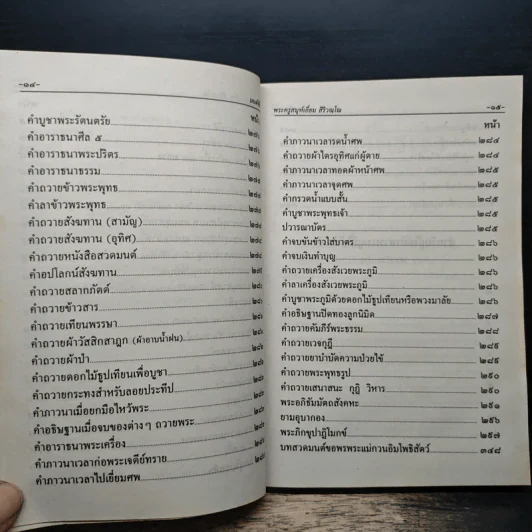 -๑๔-
หน้า
คำบูชาพระรัตนตรัย
คำอาราธนาศีล ๕
คำอาราธนาพระปริตร
คำอาราธนาธรรม
คำถวายข้าวพระพุทธ
คำลาข้าวพระพุทธ
คำถวายสังฆทาน (สามัญ)
คำถวายสังฆทาน (อุทิศ)
คำถวายหนังสือสวดมนต์
คำอปโลกน์สังฆทาน
คำถวายสลากภัตต์
คำถวายข้าวสาร
คำถวายเทียนพรรษา
คำถวายผ้าวัสสิกสาฎก (ผ้าอาบน้ำฝน)
คำถวายผ้าป่า
คำถวายดอกไม้ธูปเทียนเพื่อบูชา
คำถวายกระทงสำหรับลอยประทีป
คำภาวนาเมื่อยกมือไหว้พระ
คำอธิษฐานเมื่อจบของต่างๆ ถวายพระ
คำอาราธนาพระเครื่อง
คำภาวนาเวลาก่อพระเจดีย์ทราย
คำภาวนาเวลาไปเยี่ยมศพ
พระครูสมุห์เอี่ยม สิริวณฺโณ -๑๕-
หน้า
คำภาวนาเวลารดน้ำศพ ๒๘๔
คำถวายผ้าไตรอุทิศแก่ผู้ตาย ๒๘๔
คำภาวนาเวลาทอดผ้าหน้าศพ ๒๘๕
คำภาวนาเวลาจุดศพ ๒๘๕
คำกรวดน้ำแบบสั้น ๒๘๕
คำบูชาพระพุทธเจ้า ๒๘๕
ปวารณาบัตร ๒๘๕
คำจบขันข้าวใส่บาตร ๒๘๖
คำจบเงินทำบุญ ๒๘๖
คำถวายเครื่องสังเวยพระภูมิ ๒๘๖
คำลาเครื่องสังเวยพระภูมิ ๒๘๖
คำบูชาพระภูมิด้วยดอกไม้ธูปเทียนหรือพวงมาลัย ๒๘๖
คำอธิษฐานปิดทองลูกนิมิต ๒๘๗
คำถวายคัมภีร์พระธรรม ๒๘๘
คำถวายเวจกุฎี ๒๘๙
คำถวายยาบำบัดความป่วยไข้ ๒๘๙
คำถวายพระพุทธรูป ๒๙๐
คำถวายเสนาสนะ กุฏิ วิหาร ๒๙๐
พระอภิธัมมัตถสังคหะ ๒๙๑
ยามอุบากอง ๒๙๖
พระภิกขุปาฏิโมกข์ ๒๙๗
บทสวดมนต์ขอพรพระแม่กวนอิมโพธิสัตว์ ๓๔๘